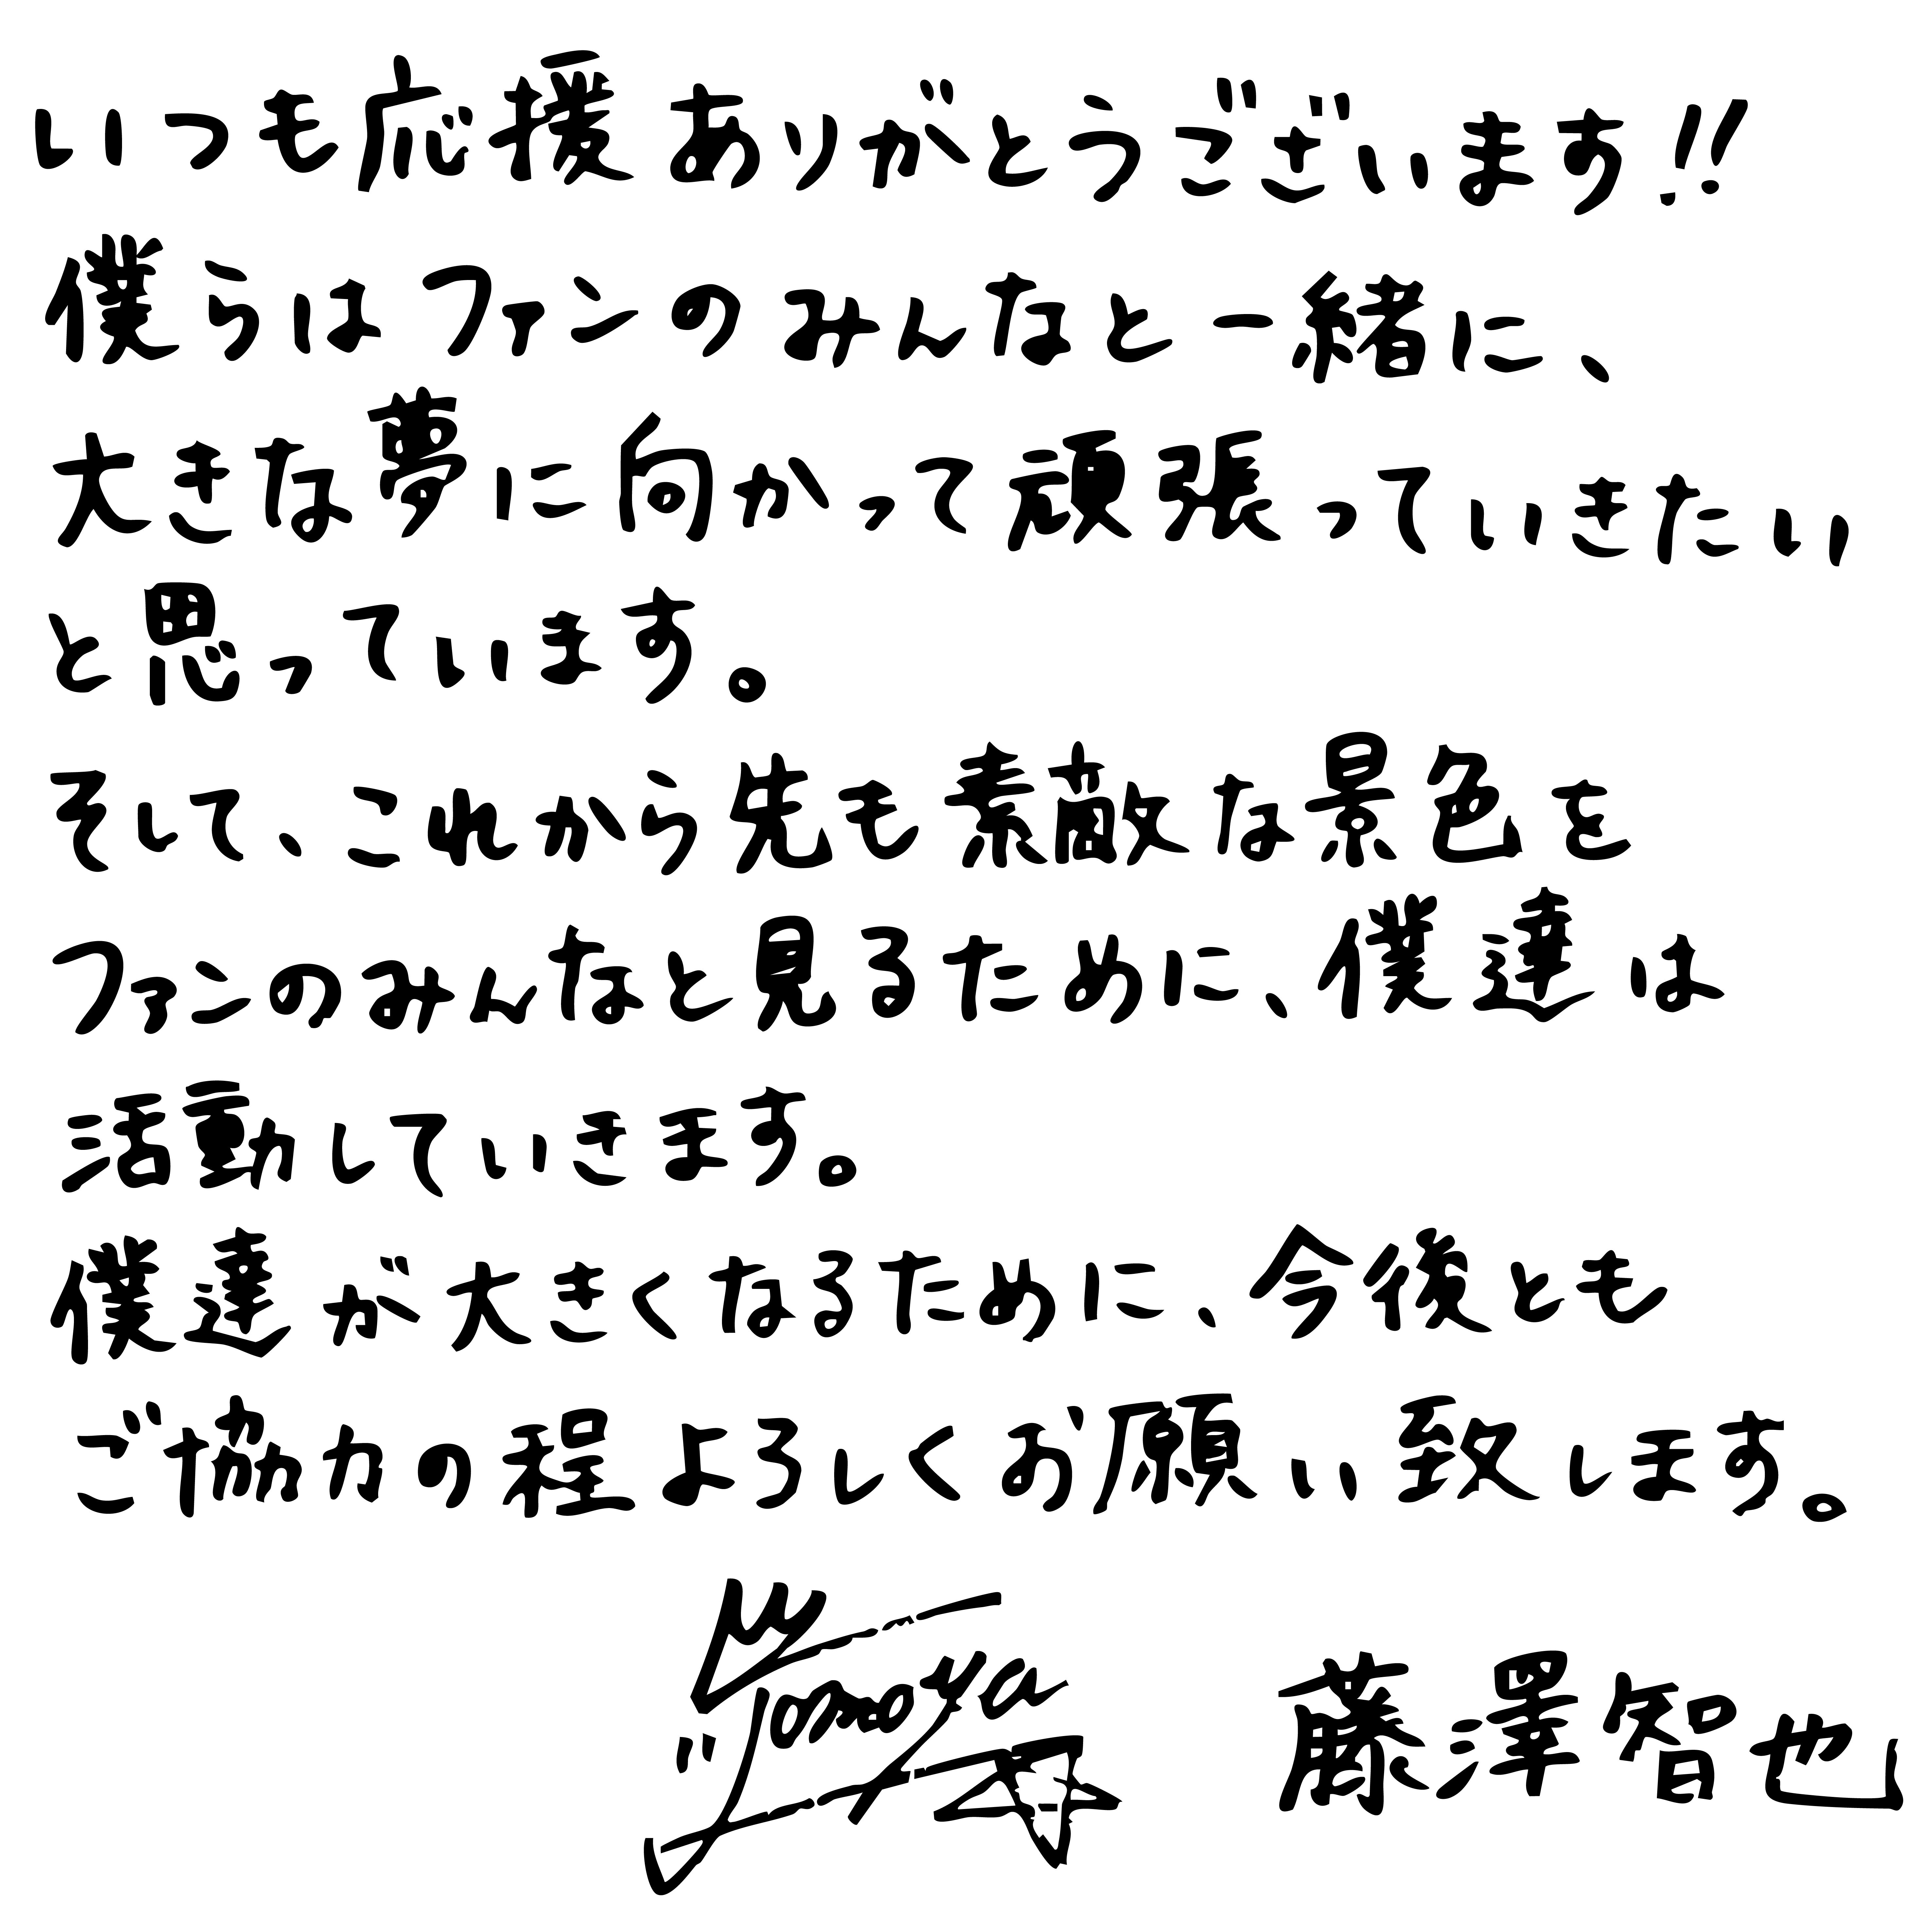 いつも応援ありがとうございます!!
僕らはファンのみんなと一緒に、
大きな夢に向かって頑張っていきたい
と思っています。
そして、これから先も素敵な景色を
ファンのみんなと見るために、僕達は
活動しています。
僕達が大きくなるために、今後とも
ご協力の程よろしくお願い致します。
藤澤智也